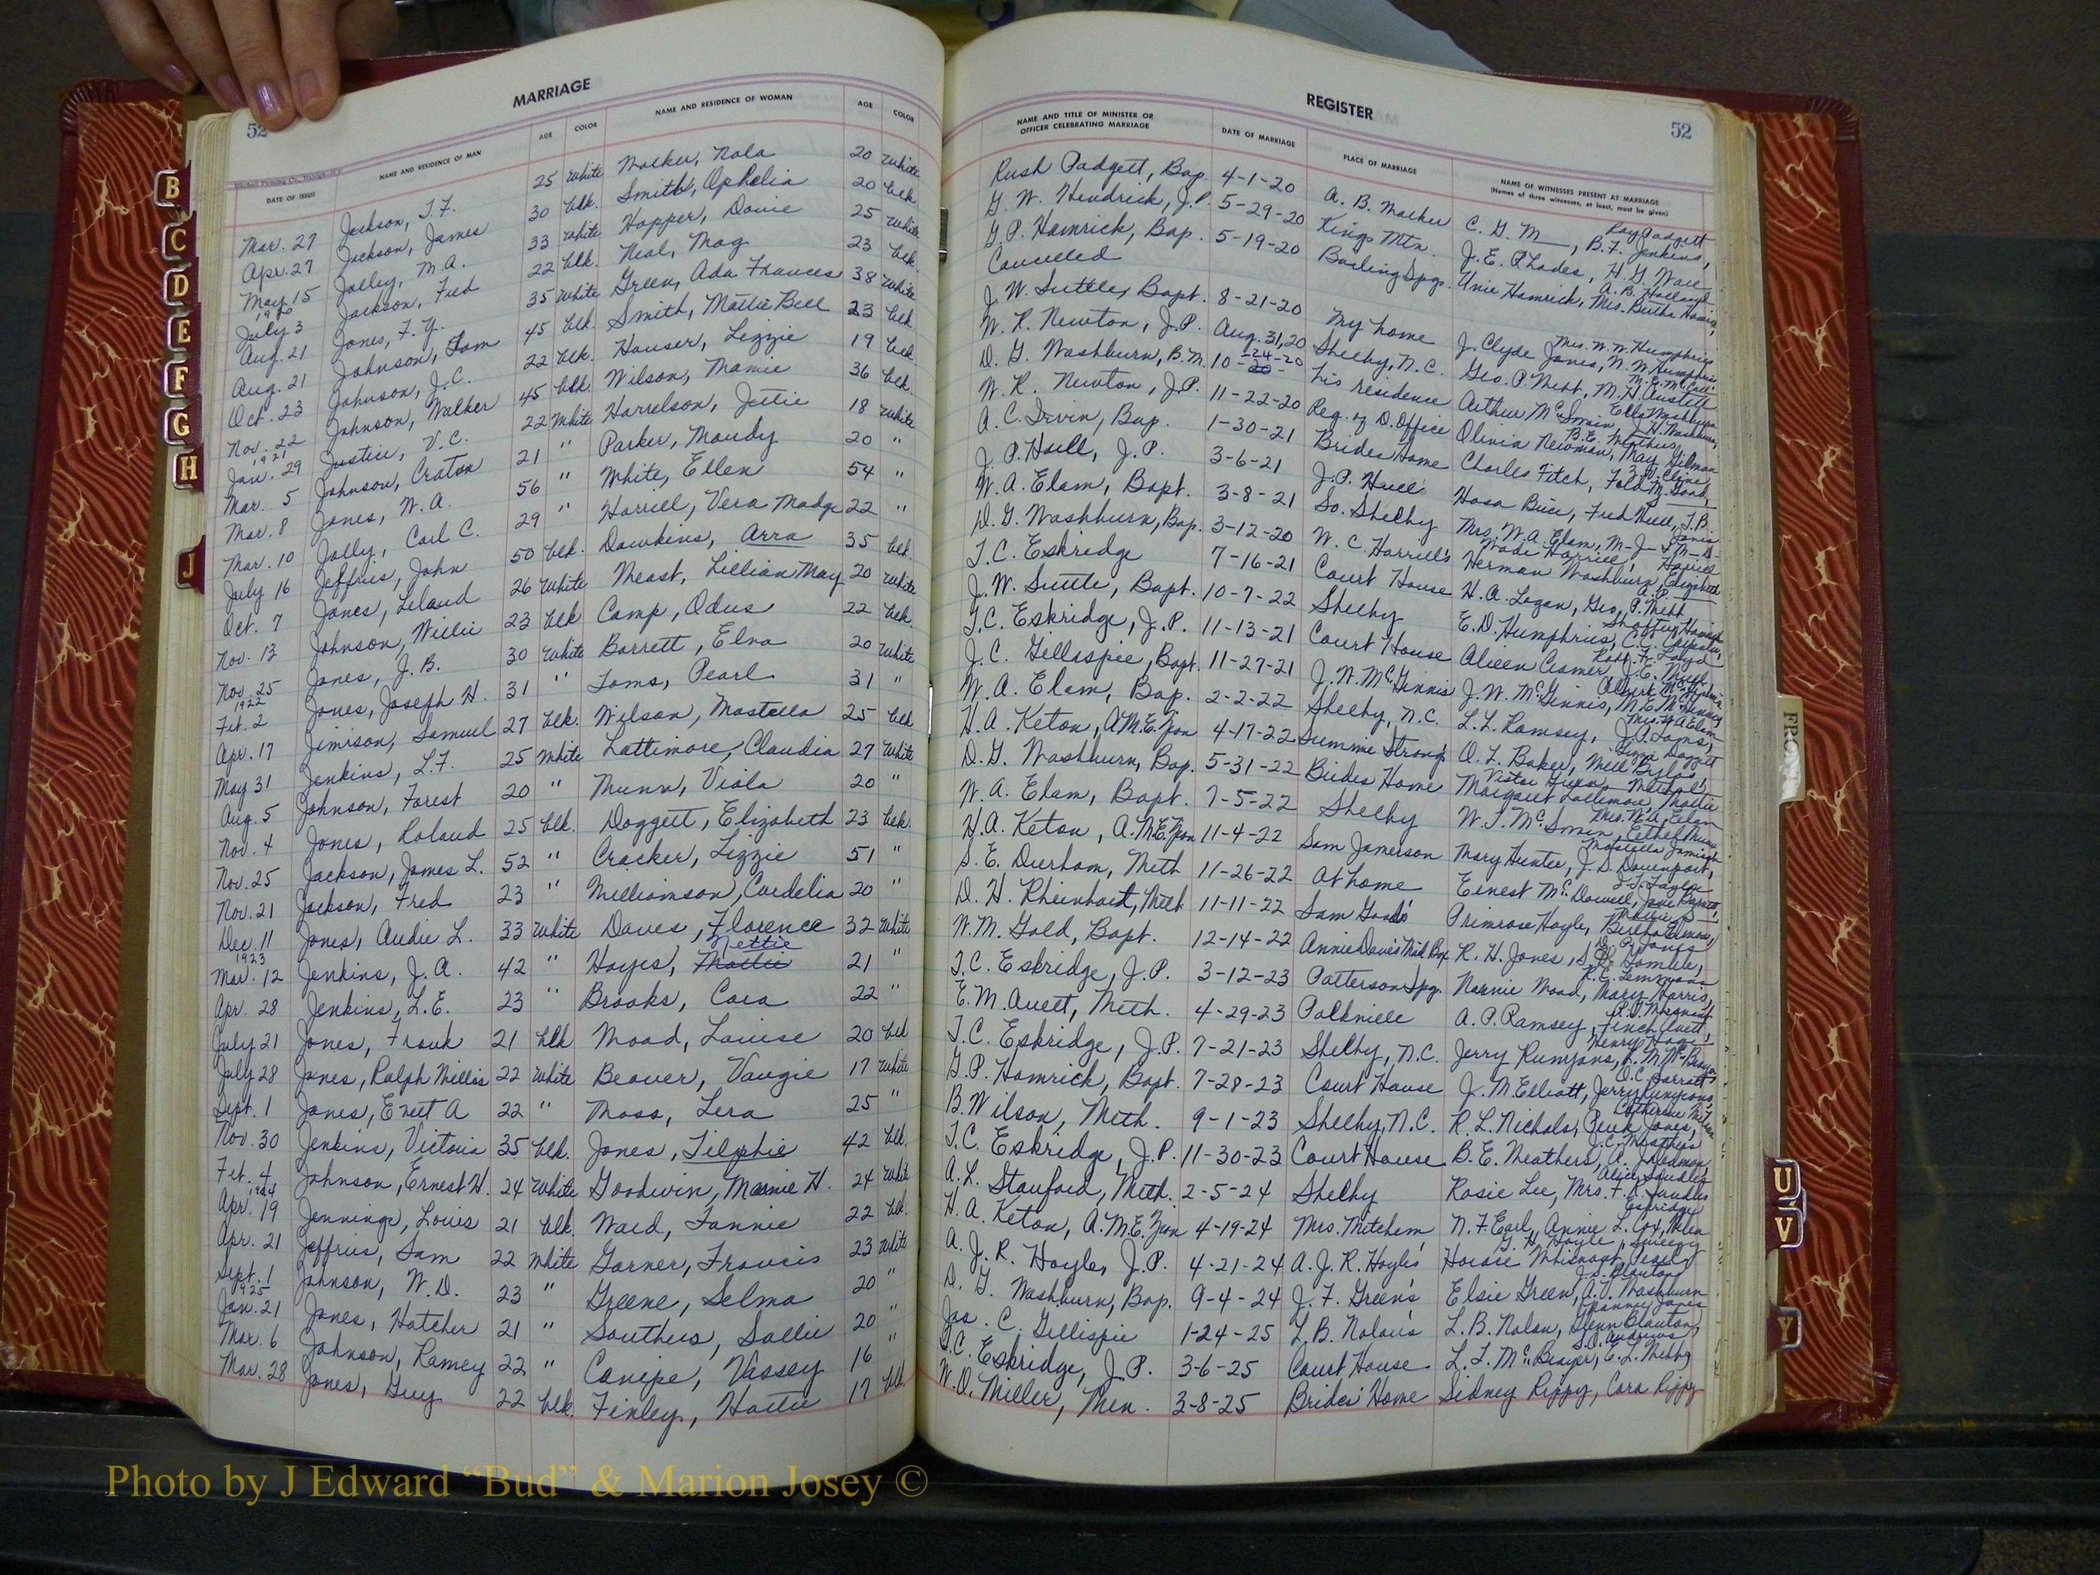 MARRIAGE
52
DATE OF ISSUE NAME AND RESIDENCE OF MAN AGE COLOR NAME AND RESIDENCE OF WOMAN AGE COLOR
Mar. 27 Jackson, T.F. 25 White Nola 20 White
Apr. 27 Jackson, James 30 blk. Smith, Ophelia 20 blk.
May 15 Jolley, M.A. 33 White Hopper, Dovie 25 White
1920
July 3 Jackson, Fred 22 blk. Neal, Mag 23 blk.
Aug. 21 Jones, F.Y. 35 White Green, Ada Frances 38 White
Aug. 21 Johnson, Sam 45 blk. Smith, Mattie Bell 23 blk.
Oct. 23 Johnson, J.C. 22 blk. Houser, Lizzie 19 blk.
Nov. 22 Johnson, Walker 45 blk. Wilson, Mamie 36 blk.
1921
Jan. 29 Justice, V.C. 22 White Harrelson, Jettie 18 White
Mar. 5 Johnson, Craton 21 " Parker, Maudy 20 "
Mar. 8 Jones, W.A. 56 " White, Ellen 54 "
Mar. 10 Jolly, Carl C. 29 " Harrill, Vera Madge 22 "
July 16 Jeffries, John 50 blk. Dawkins, Arra 35 blk.
Oct. 7 Jones, Leland 26 White Neast, Lillian May 20 White
Nov. 13 Johnson, Willie 23 blk Camp, Odus 22 blk.
Nov. 25 Jones, J.B. 30 White Barrett, Elva 20 White
1922
Feb. 2 Jones, Joseph H. 31 " Toms, Pearl 31 "
Apr. 17 Jimison, Samuel 27 blk. Wilson, Mostella 25 blk
May 31 Jenkins, L.F. 25 White Lattimore, Claudia 27 White
Aug. 5 Johnson, Forest 20 " Munn, Viola 20 "
Nov. 4 Jones, Roland 25 blk. Doggett, Elizabeth 23 blk.
Nov. 25 Jackson, James L. 52 " Crocker, Lizzie 51 "
Nov. 21 Jackson, Fred 23 " Williamson, Cordelia 20 "
Dec. 11 Jones, Audie L. 33 White Daves, Florence 32 White
1923 Nettie
Mar. 12 Jenkins, J.A. 42 " Hayes, Mattie 21 "
Apr. 28 Jenkins, L.E. 23 " Brooks, Cora 22 "
July 21 Jones, Frank 21 blk Wood, Louise 20 blk
July 28 Jones, Ralph Millis 22 White Beaver, Vangie 17 White
Sept. 1 Jones, Evert A 22 " Moss, Lera 25 "
Nov. 30 Jenkins, Victoria 35 blk. Jones, Tilphie 42 blk.
Feb. 4 Johnson, Ernest H. 24 White Goodwin, Mamie H. 24 White
1924
Apr. 19 Jennings, Louis 21 blk. Ward, Fannie 22 blk.
Apr. 21 Jeffries, Sam 22 White Garner, Francis 23 White
Sept. 1 Johnson, W.D. 23 " Greene, Selma 20 "
1925
Jan. 21 Jones, Hatcher 21 " Southers, Sallie 20 "
Mar. 6 Johnson, Ramey 22 " Canipe, Vassey 16 "
Mar. 28 Jones, Guy 22 blk. Finley, Hattie 17 blk.
REGISTER
52
NAME AND TITLE OF MINISTER OR
OFFICER CELEBRATING MARRIAGE
DATE OF MARRIAGE
PLACE OF MARRIAGE
NAME OF WITNESSES PRESENT AT MARRIAGE
(Names of three witnesses, at least, must be given)
Rush Padgett, Bap. 4-1-20 A. B. C. G. M, B.F. Jenkins, Roy Padgett
G. W. Hendrick, J.P. 5-29-20 Kings Mtn. J.E. Rhodes, H.G. Ware
G P. Hamrick, Bap. 5-19-20 Boiling Spgs. Unie Hamrick, A.B. Holland Mrs. Bertha Hamrick,
Cancelled
J. W. Suttle, Bapt. 8-21-20 My home J. Clyde Jones, W.W. Humphries Mrs. W.W. Humphries
W. R. Newton, J.P. Aug. 31, 20 Shelby, N.C. Geo. P. Webb, M.H. Austell
D. G. Washburn, B.M. 10-24-20 His residence Arthur McSwain, J.H. Washburn, Ella Washburn
W. R. Newton, J.P. 11-22-20 Reg. of D. Office Olivia Newman, May Gilman B.E. Weathers,
A. C. Irvin, Bap. 1-30-21 Brides Home Charles Fitch,
J. P. Harll, J.P. 3-6-21 J.P. Harll Hosa Bice, Fred Harll, J.B. Jones
W. A. Elam, Bapt. 3-8-21 So. Shelby Mrs. W.A. Elam,
D. G. Washburn, Bap. 3-12-20 W. C. Harrill's Herman Washburn, Elizabeth Wade Harrill, Harrill
T. C. Eskridge 7-16-21 Court House H. A. Logan, Geo. P. Webb
J. W. Suttle, Bapt. 10-7-22 Shelby E.D. Humphries,
T.C. Eskridge, J.P. 11-13-21 Court House Aileen Cramer, J.E. Webb,
J. C. Gillespie, Bapt. 11-27-21 J.W. McGinnis J.W. McGinnis,
W. A. Elam, Bap. 2-2-22 Shelby, N.C. L.L. Ramsey, J.A. Toms, Mrs. W.A. Elam
H. A. Keton, A.M.E. Zion 4-17-22 Summie Strong's O.L. Baker, Will Byers, Lizzie Doggett
D. G. Washburn, Bap. 5-31-22 Brides Home Margaret Lattimore, Mattie
W. A. Elam, Bapt. 7-5-22 Shelby W.T. McSwain, Ethel Munn Mrs. W.A. Elam
H. A. Keton, A.M.E. Zion 11-4-22 Sam Jamerson Mary Hunter, J.D. Davenport, Mostella Jamison
S. E. Durham, Meth 11-26-22 At home Ernest McDowell,
D. H. Rheinhart, Meth 11-11-22 Sam Goode's Primrose Hoyle,
W. M. Gold, Bapt. 12-14-22 Annie Daves R. H. Jones, S.D. Gamble,
T. C. Eskridge, J.P. 3-12-23 Patterson Spg. Nannie Wood, Mary Harris,
E. M. Avett, Meth. 4-29-23 Polkville A. P. Ramsey, Finch Avett,
T. C. Eskridge, J.P. 7-21-23 Shelby, N.C. Jerry Runyans,
G. P. Hamrick, Bapt. 7-28-23 Court House J. M Elliott, Jerry Runyans,
B. Wilson, Meth. 9-1-23 Shelby, N.C. R. L. Nichols, Jones,
T. C. Eskridge, J.P. 11-30-23 Court House B. E. Weathers,
A. L. Stanford, Meth. 2-5-24 Shelby Rosie Lee,
H. A. Keton, A.M.E. Zion 4-19-24 Mrs. Mitchem N. F. Earl, Annie L. Cox,
A. J. R. Hoyle, J.P. 4-21-24 A. J. R. Hoyle's Whisnant, G. H. Hoyle,
D. G. Washburn, Bap. 9-4-24 J. F. Green's Elsie Green, A.V. Washburn
Jas. C. Gillispie 1-24-25 L. B. Nolan's L. B. Nolan, Glenn Blanton, Nannie Jones
T. C. Eskridge, J.P. 3-6-25 Court House L. L. McBrayer, E. L. Webb S.D. Andrews
W. O. Miller, Men. 3-8-25 Brides Home Sidney Rippy, Cora Rippy
B
C
D
E
F
G
H
J
FRONT
U
V
Y
Photo by J Edward “Bud” & Marion Josey ©